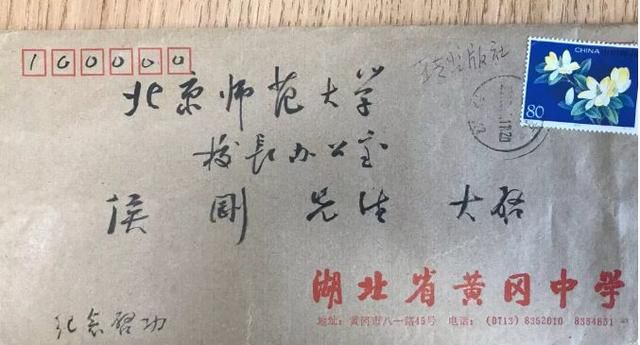 100000
转出版社
CHINA
80
北京师范大学
校長办公室
侯 刚 先生 大启
湖北省黄冈中学
地址:黄冈市八一路45号 电话:(0713)8352010 8384831
纪念启功